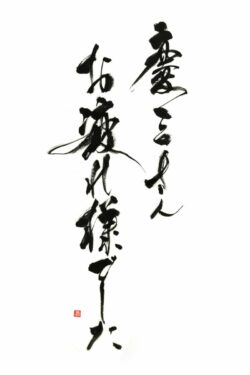 慶三さん
お疲れ様でした